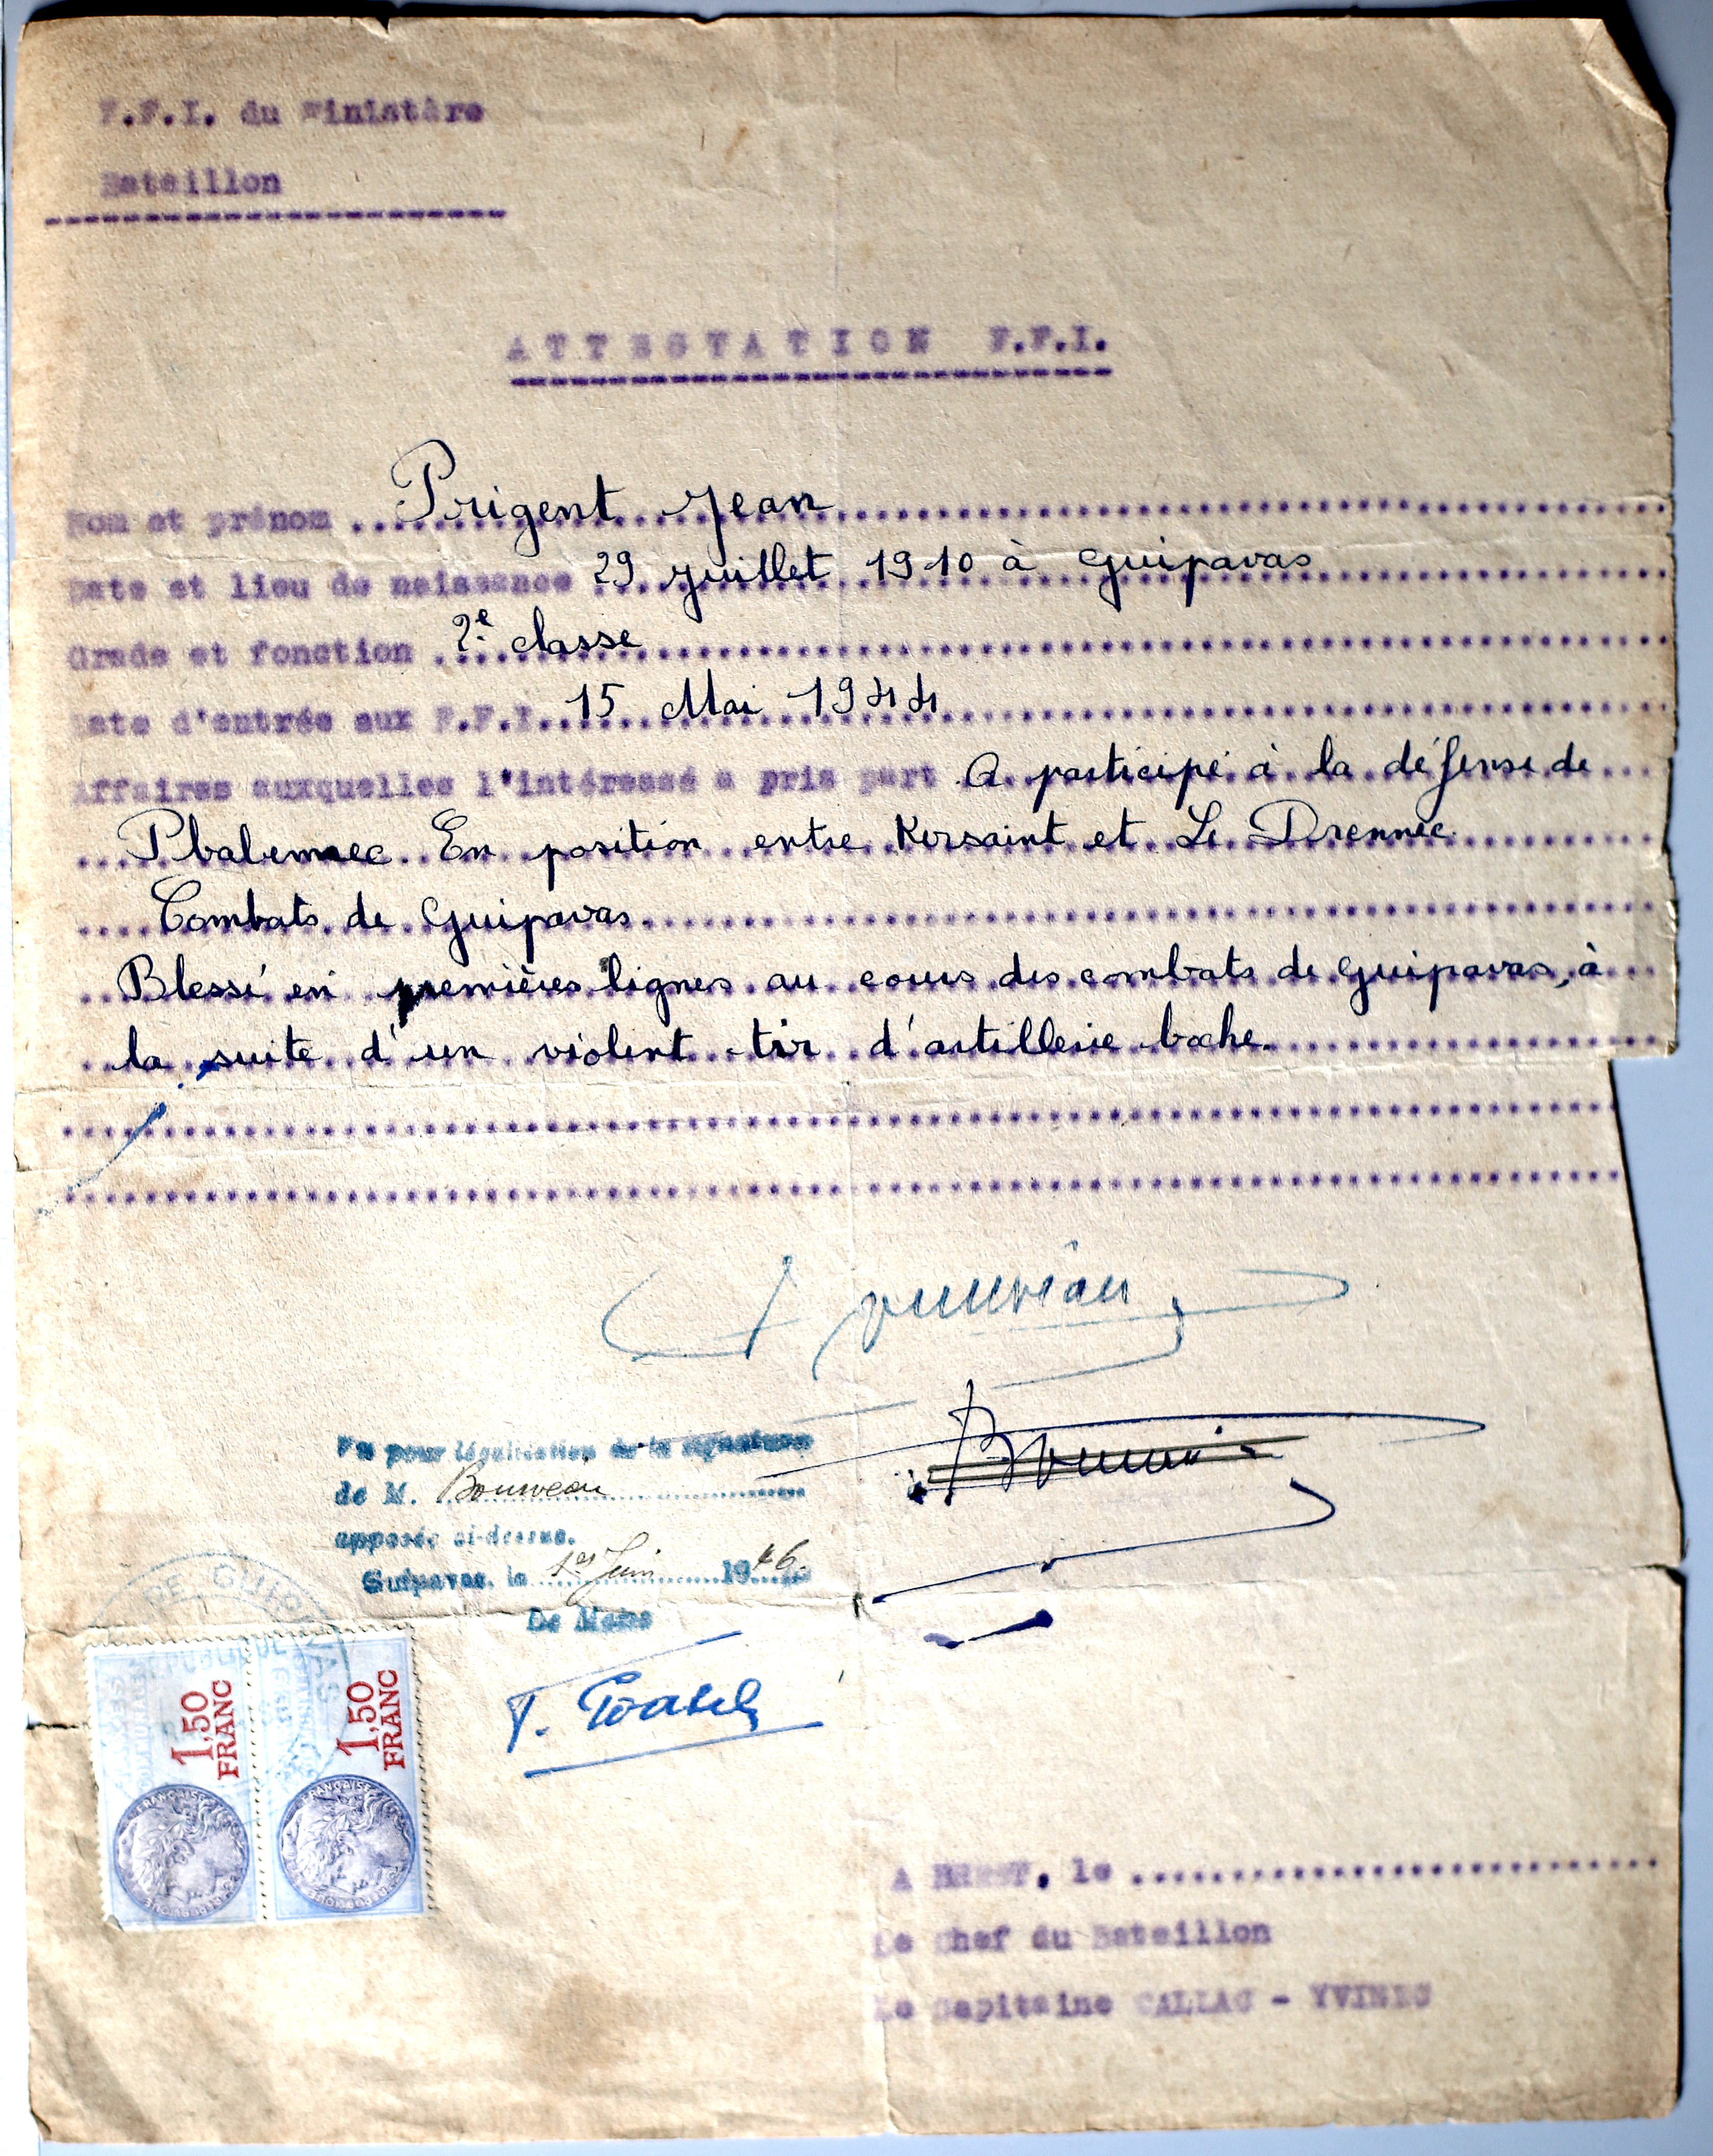 F.F.I. du Finistère
Bataillon
ATTESTATION F.F.I.
Nom et prénom ... Prigent Jean
Date et lieu de naissance 29 Juillet 1910 à Guipavas
Grade et fonction 2e classe
Date d'entrée aux F.F.I. 15 Mai 1944
Affaires auxquelles l'intéressé a pris part A participé à la défense de
Plabennec En position entre Kersaint et Le Drennec
Combats de Guipavas
Blessé en premières lignes au cours des combats de Guipavas, à
la suite d'un violent tir d'artillerie boche.
Vu pour légalisation de la signature
de M. Bourveau
apposée ci-dessus.
Guipavas, le 1er Juin 1946
Le Maire
DE GUIPAVAS
1,50 FRANC
1,50 FRANC
A BREST, le
Le Chef du Bataillon
Le Capitaine CALLAC - YVINEC